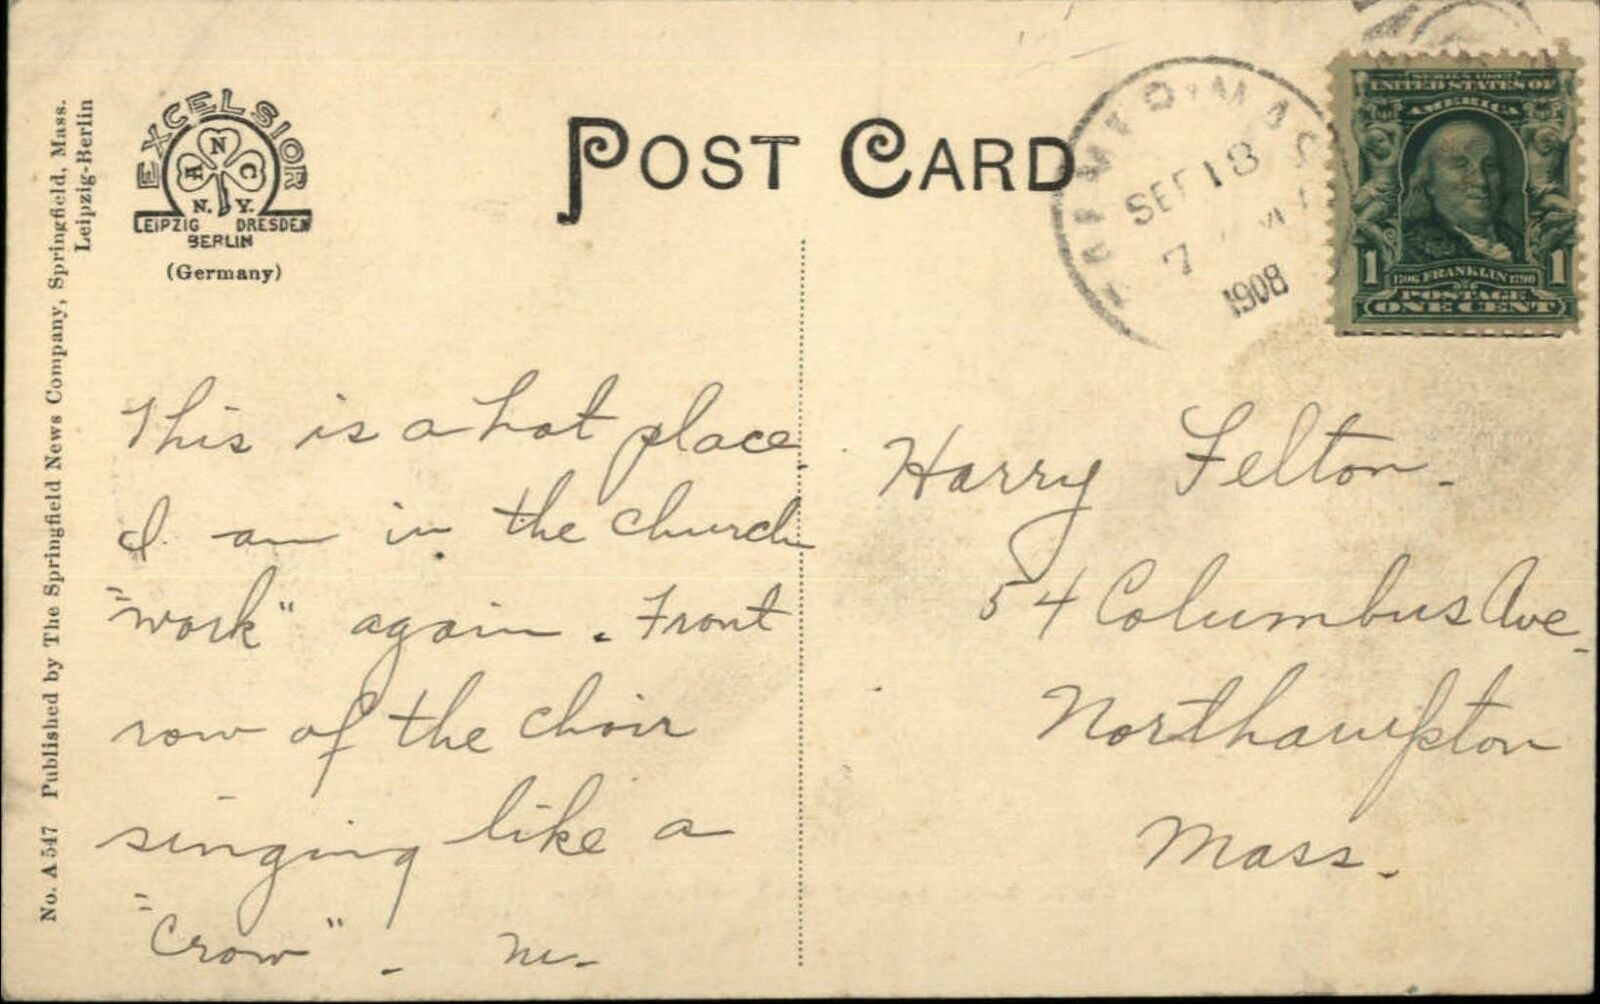 No. A 547 Published by The Springfield News Company, Springfield, Mass.
Leipzig-Berlin
EXCELSIOR
A N C
N. Y.
LEIPZIG DRESDEN
BERLIN
(Germany)
POST CARD
MASS
SEP 18
7
1908
SERIES 1902
UNITED STATES OF
AMERICA
1 1706 FRANKLIN 1790 1
POSTAGE
ONE CENT
This is a hot place.
I am in the church
"work" again. Front
row of the choir
singing like a
"Crow". M.
Harry Felton.
54 Columbus Ave.
Northampton
Mass.